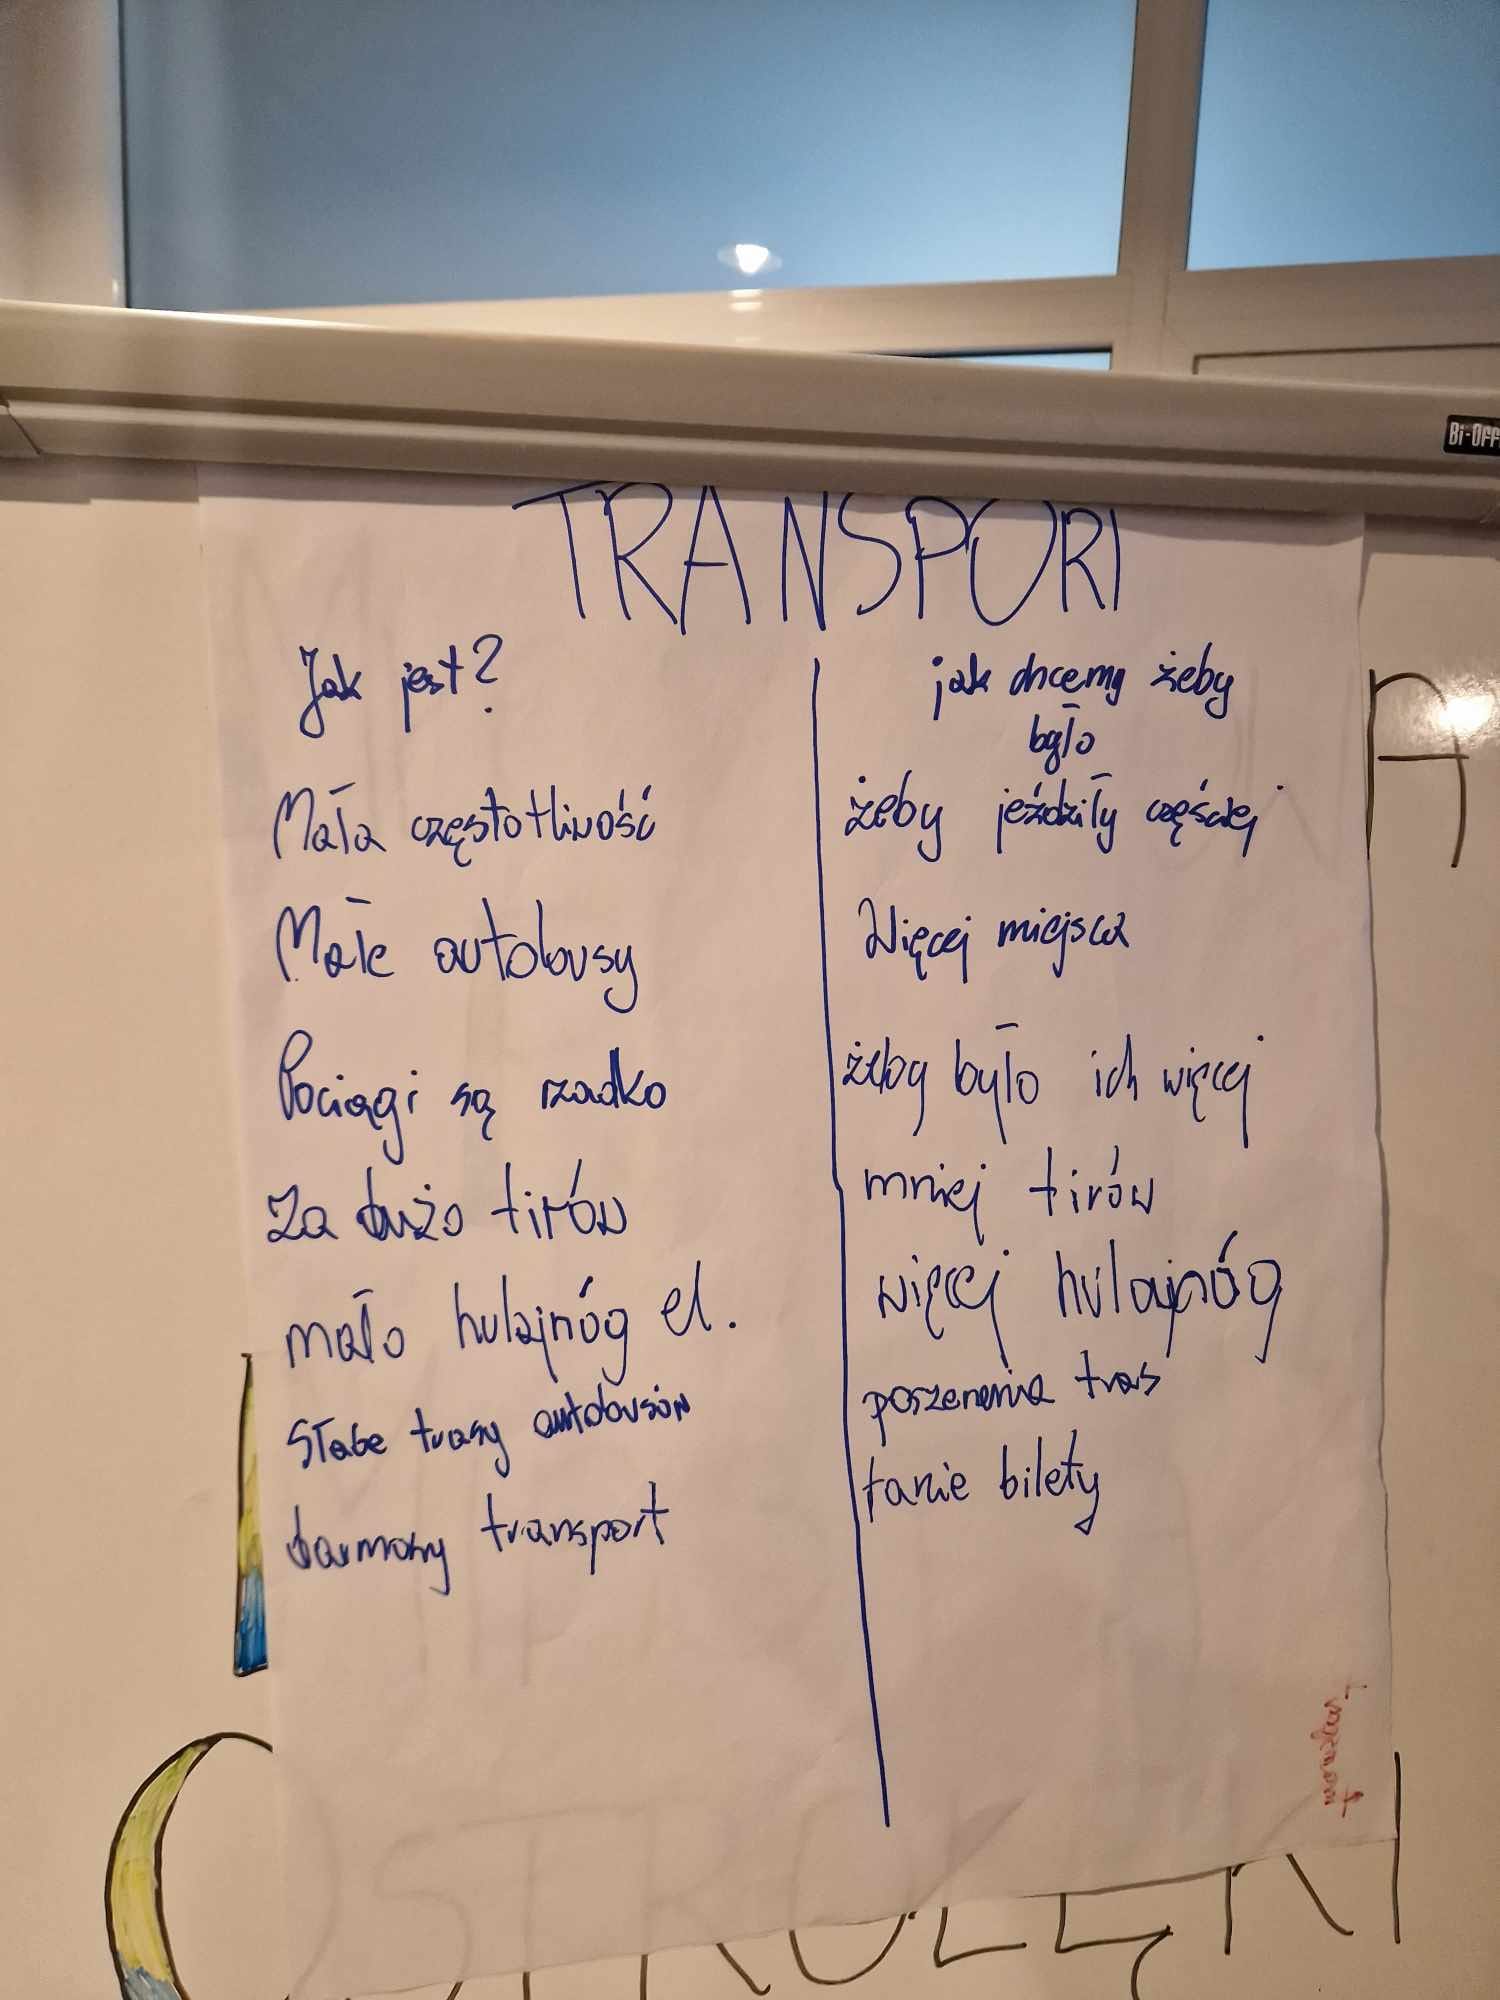 Bi-Off
TRANSPORT
Jak jest?
Mała częstotliwość
Małe autobusy
Pociągi są rzadko
Za dużo tirów
mało hulajnóg el.
słabe trasy autobusów
darmowy transport
jak chcemy żeby
było
żeby jeździły częściej
Więcej miejsca
żeby było ich więcej
mniej tirów
więcej hulajnóg
poszerzenia tras
tanie bilety
OSTROŁĘKI